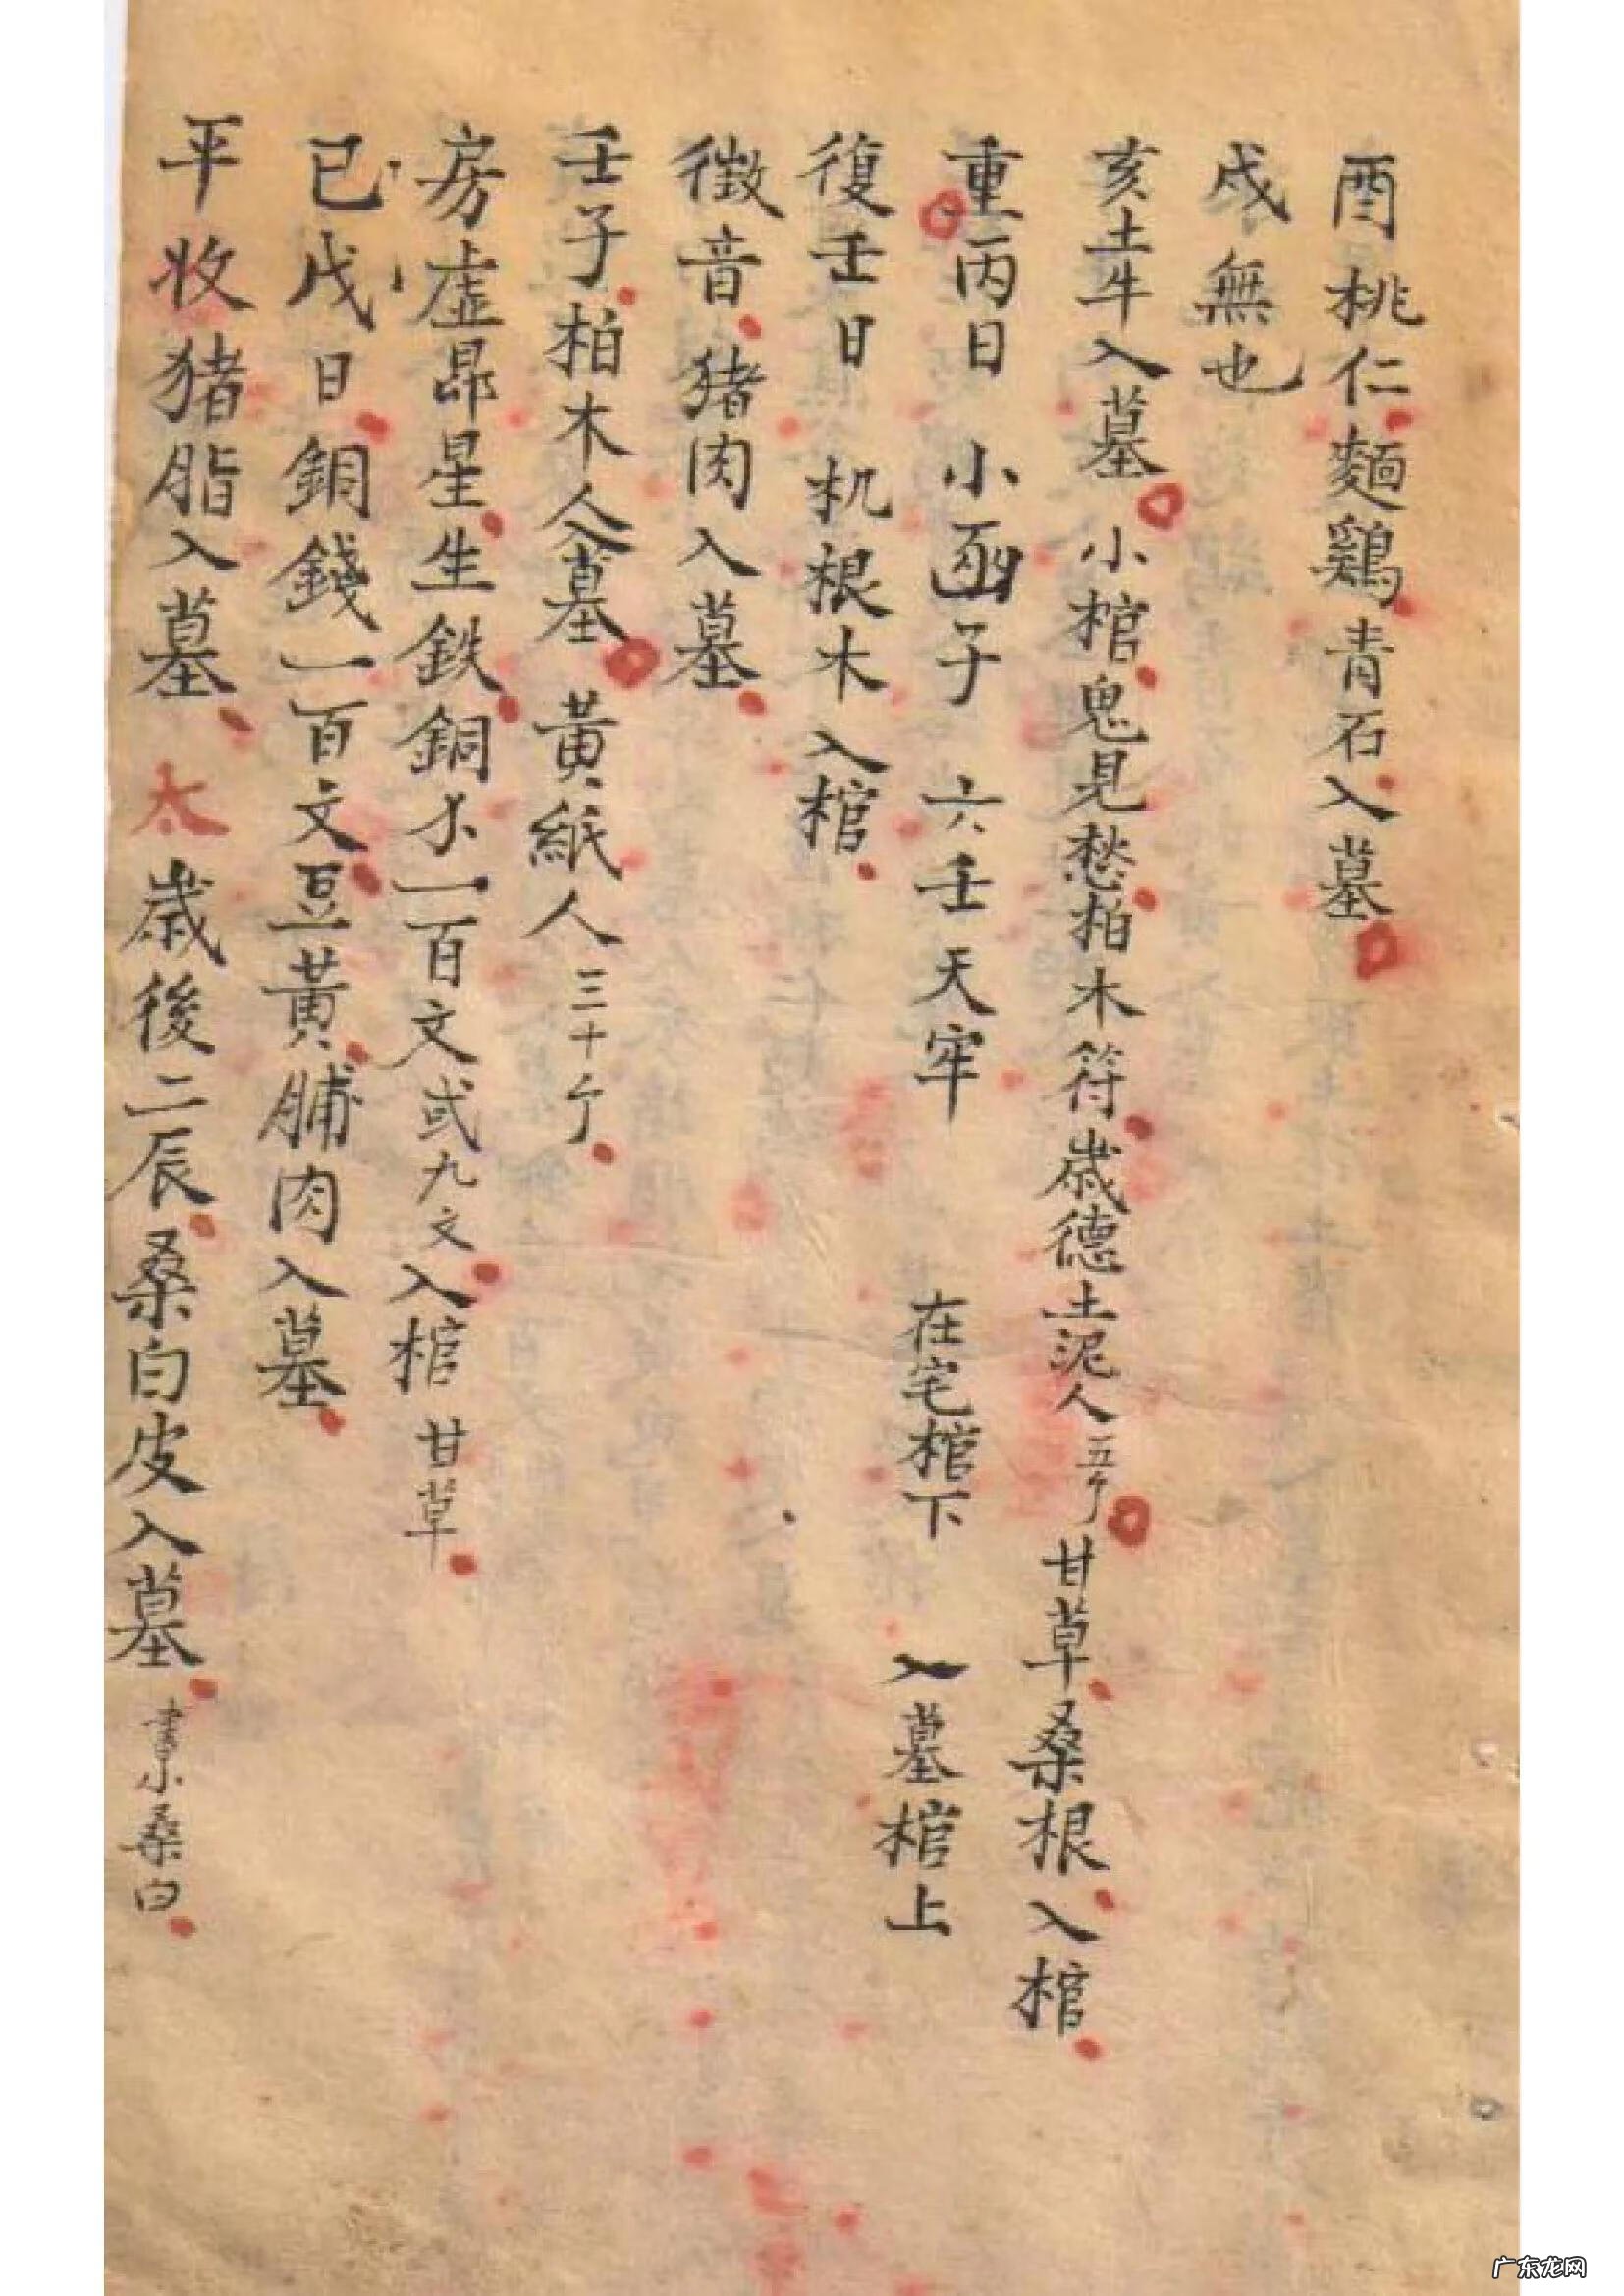 酉桃仁麵鷄青石入墓
戌無也
亥土牛入墓小棺鬼見愁柏木符歲德土泥人五个甘草桑根入棺
重丙日小函子六壬天牢在宅棺下入墓棺上
復壬日机根木入棺
徵音猪肉入墓
壬子柏木人入墓黃紙人三十个
房虛昴星生鉄銅小一百文或九文入棺甘草
已戊日銅錢一百文豆黃脯肉入墓
平收猪脂入墓太歲後二辰桑白皮入墓書小桑白
广东龙网